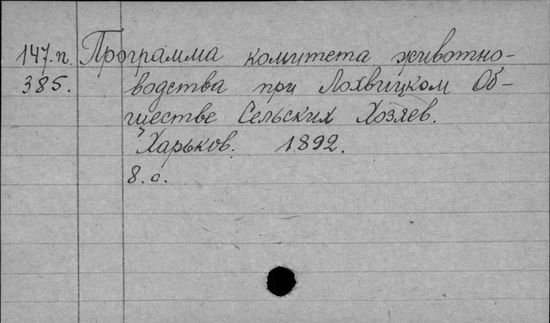 147.п. Программа комитета животно-
385. водства при Лохвицком Об-
ществе Сельских Хозяев.
Харьков. 1892.
8. с.